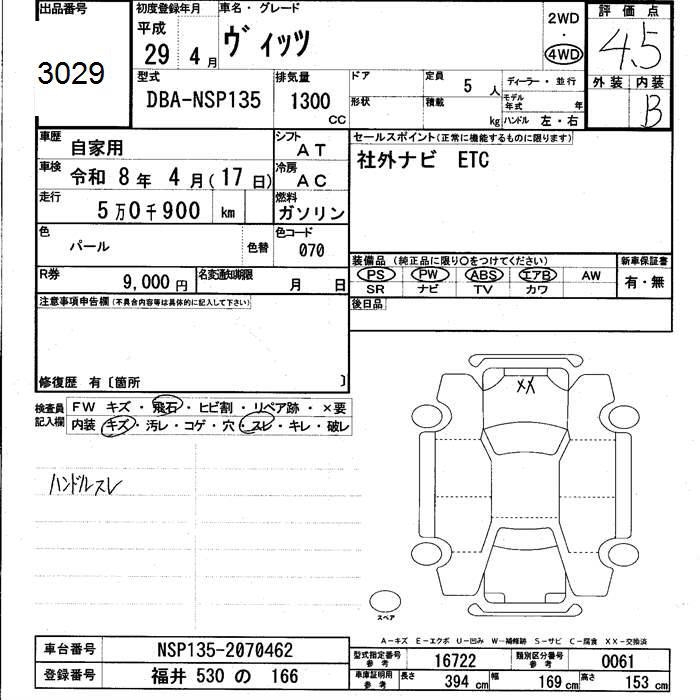 出品番号
3029
初度登録年月
平成
29 4 月
車名・グレード
ヴィッツ
2WD
・
4WD
評価点
4.5
外装 内装
B
型式
DBA-NSP135
排気量
1300
CC
ドア
形状
定員
5 人
積載
kg
ディーラー・並行
モデル年式 年
ハンドル 左・右
車歴
自家用
シフト
AT
車検
令和 8 年 4 月 ( 17 日)
冷房
AC
走行
5 万 0 千 900 km
燃料
ガソリン
色
パール
色替
色コード
070
R券
9,000 円
名変通知期限
月 日
セールスポイント(正常に機能するものに限ります)
社外ナビ ETC
装備品 (純正品に限り○をつけてください)
PS PW ABS エアB AW
SR ナビ TV カワ
新車保証書
有・無
後日品
注意事項申告欄(不具合内容等は具体的に記入して下さい)
修復歴 有〔箇所 〕
検査員記入欄
FW キズ・飛石・ヒビ割・リペア跡・×要
内装 キズ・汚レ・コゲ・穴・スレ・キレ・破レ
ハンドルスレ
XX
スペア
A-キズ E-エクボ U-凹み W-補修跡 S-サビ C-腐食 XX-交換済
車台番号
NSP135-2070462
登録番号
福井 530 の 166
型式指定番号 参考
16722
類別区分番号 参考
0061
車庫証明用 参考
長さ 394 cm 幅 169 cm 高さ 153 cm